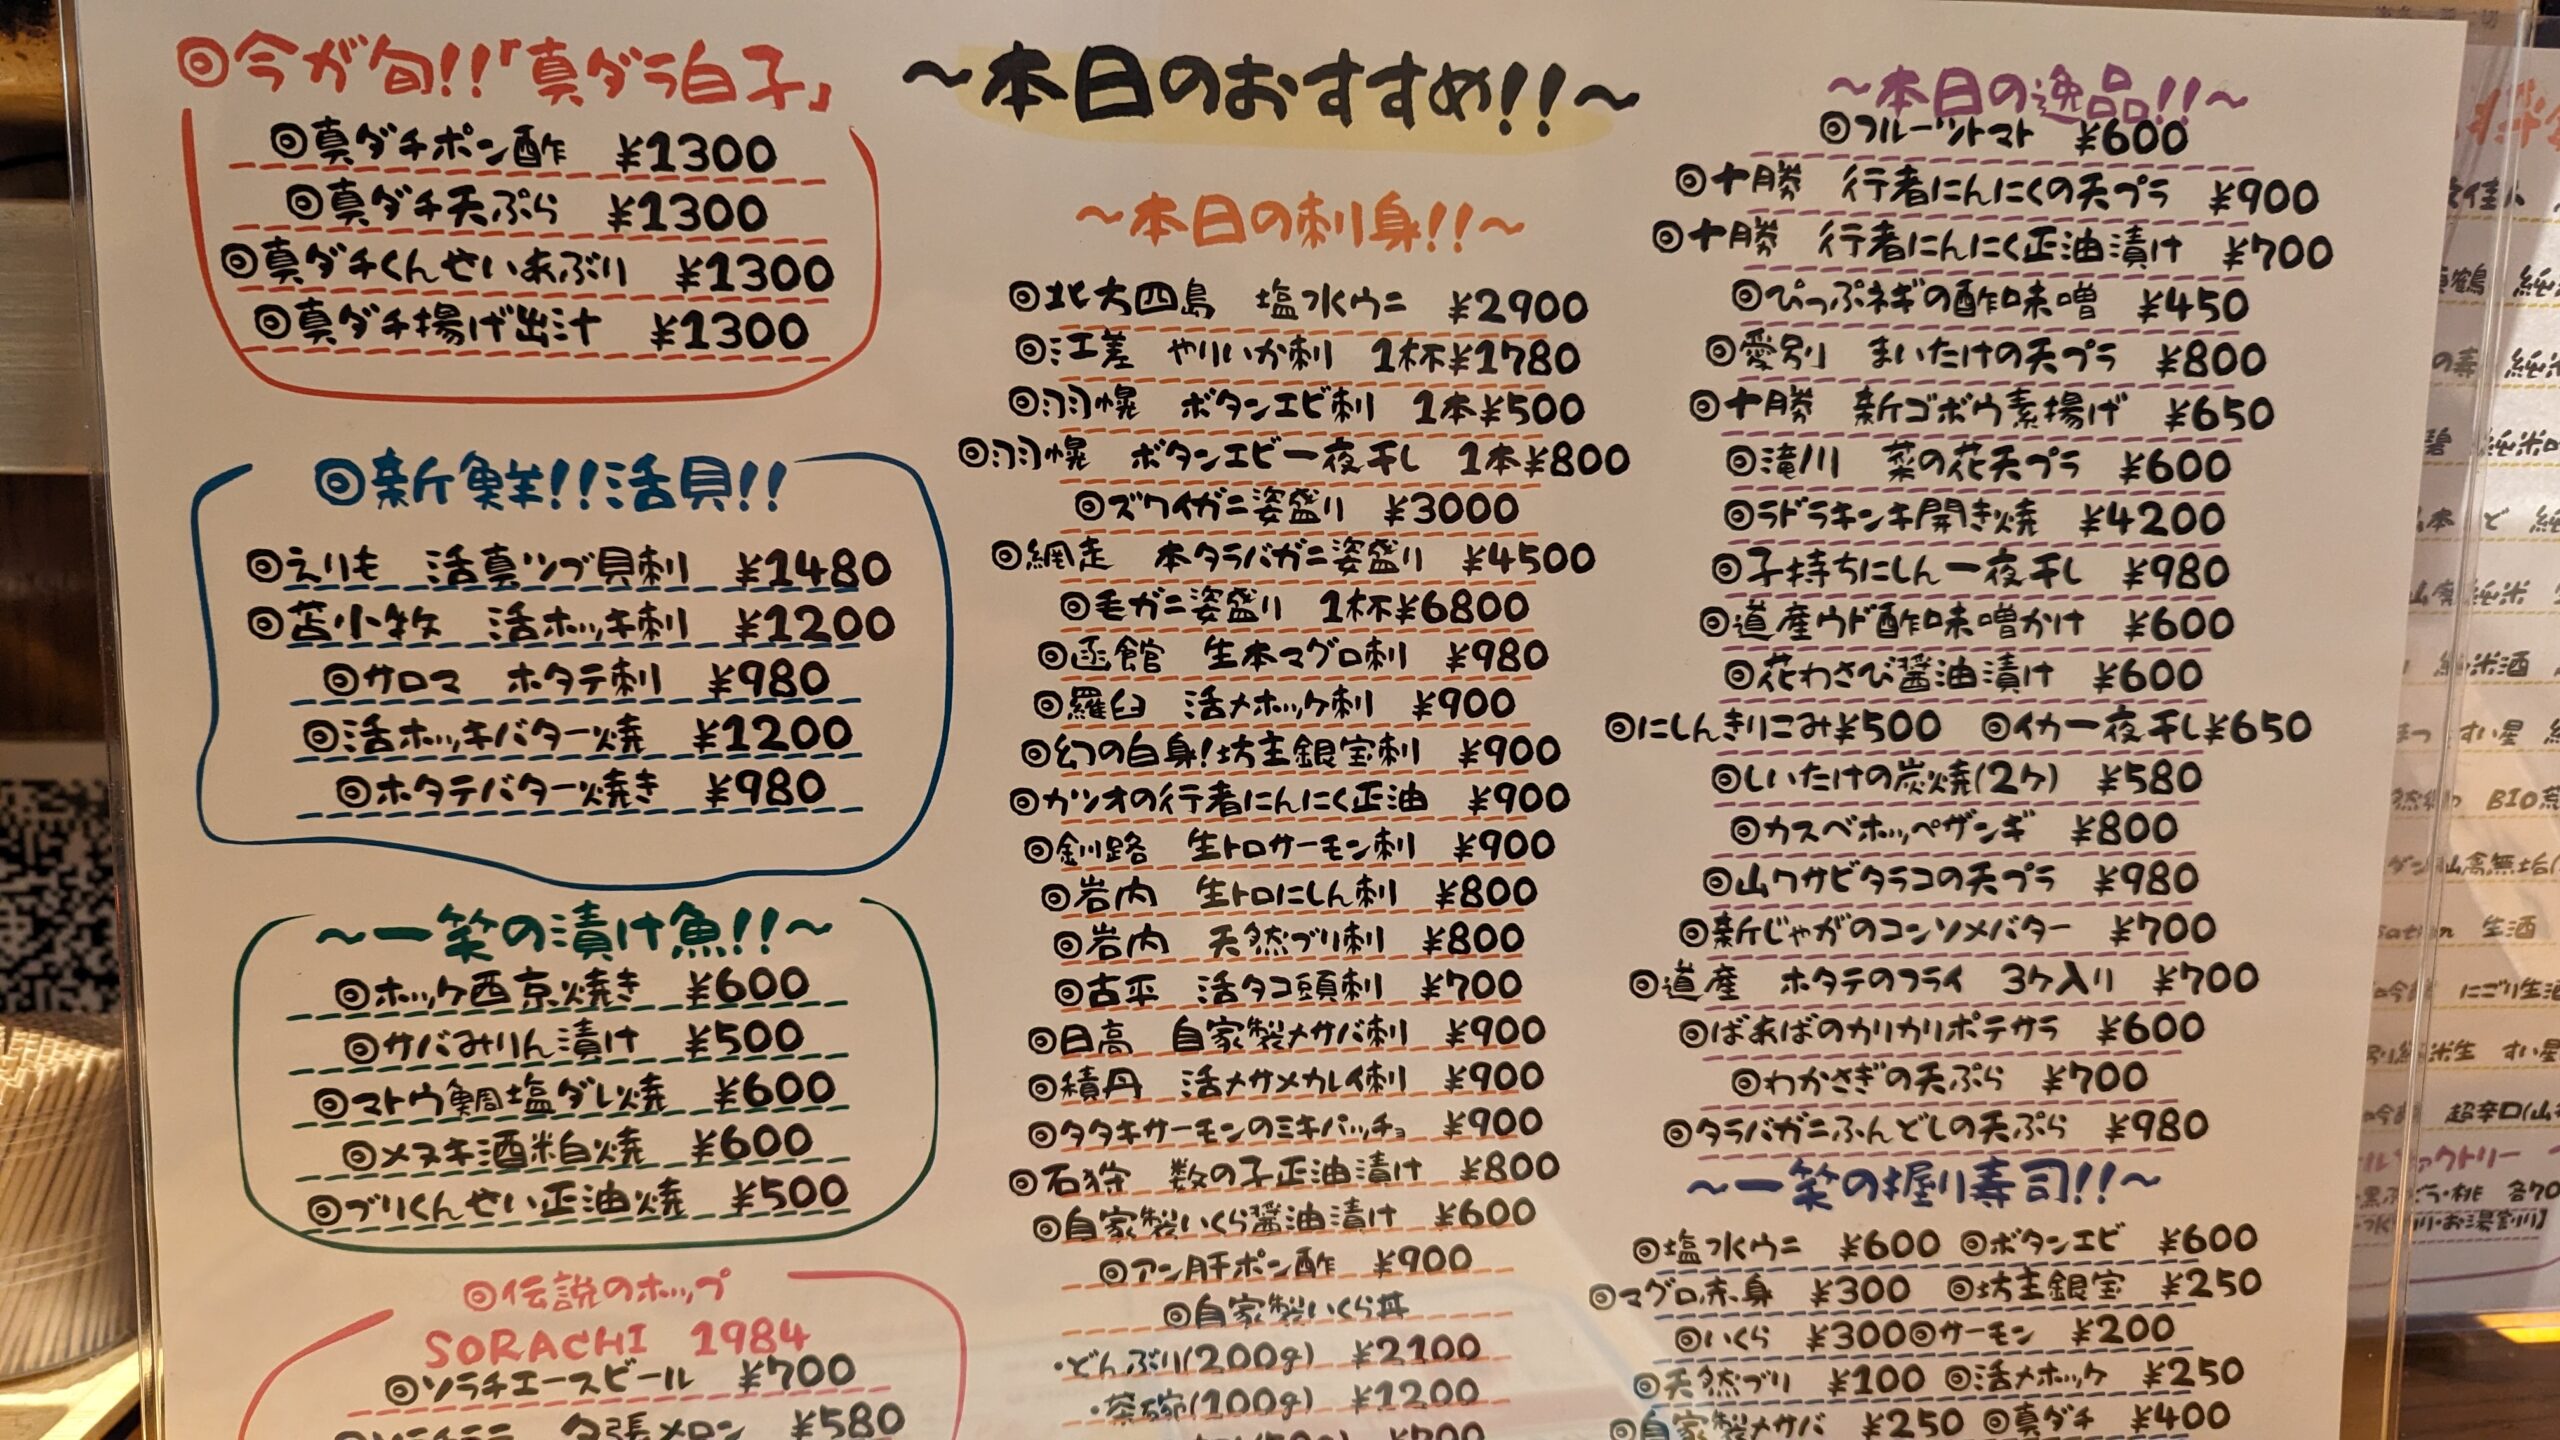 ◎今が旬!!「真ダラ白子」
◎真ダチポン酢 ¥1300
◎真ダチ天ぷら ¥1300
◎真ダチくんせいあぶり ¥1300
◎真ダチ揚げ出汁 ¥1300
◎新鮮!!活貝!!
◎えりも 活真ツブ貝刺 ¥1480
◎苫小牧 活ホッキ刺 ¥1200
◎サロマ ホタテ刺 ¥980
◎活ホッキバター焼 ¥1200
◎ホタテバター焼き ¥980
～一笑の漬け魚!!～
◎ホッケ西京焼き ¥600
◎サバみりん漬け ¥500
◎マトウ鯛塩ダレ焼 ¥600
◎メヌキ酒粕焼 ¥600
◎ブリくんせい正油焼 ¥500
◎伝説のホップ
SORACHI 1984
◎ソラチエースビール ¥700
夕張メロン ¥580
～本日のおすすめ!!～
～本日の刺身!!～
◎北方四島 塩水ウニ ¥2900
◎江差 やりいか刺 1杯¥1780
◎羽幌 ボタンエビ刺 1本¥500
◎羽幌 ボタンエビ一夜干し 1本¥800
◎ズワイガニ姿盛り ¥3000
◎網走 本タラバガニ姿盛り ¥4500
◎毛ガニ姿盛り 1杯¥6800
◎函館 生本マグロ刺 ¥980
◎羅臼 活〆ホッケ刺 ¥900
◎幻の白身!坊主銀宝刺 ¥900
◎カツオの行者にんにく正油 ¥900
◎釧路 生トロサーモン刺 ¥900
◎岩内 生トロにしん刺 ¥800
◎岩内 天然ブリ刺 ¥800
◎古平 活タコ頭刺 ¥700
◎日高 自家製〆サバ刺 ¥900
◎積丹 活〆サメカレイ刺 ¥900
◎タタキサーモンのミキパッチョ ¥900
◎石狩 数の子正油漬け ¥800
◎自家製いくら醤油漬け ¥600
◎アン肝ポン酢 ¥900
◎自家製いくら丼
・どんぶり(200g) ¥2100
・茶碗(100g) ¥1200
～本日の逸品!!～
◎フルーツトマト ¥600
◎十勝 行者にんにくの天プラ ¥900
◎十勝 行者にんにく正油漬け ¥700
◎ぴっぷネギの酢味噌 ¥450
◎愛別 まいたけの天プラ ¥800
◎十勝 新ゴボウ素揚げ ¥650
◎滝川 菜の花天プラ ¥600
◎ラドラキンキ開き焼 ¥4200
◎子持ちにしん一夜干し ¥980
◎道産ウド酢味噌かけ ¥600
◎花わさび醤油漬け ¥600
◎にしんきりこみ¥500 ◎イカ一夜干し¥650
◎しいたけの炭焼(2ケ) ¥580
◎カスベホッペザンギ ¥800
◎山ワサビタラコの天プラ ¥980
◎新じゃがのコンソメバター ¥700
◎道産 ホタテのフライ 3ケ入り ¥700
◎ばあばのカリカリポテサラ ¥600
◎わかさぎの天ぷら ¥700
◎タラバガニふんどしの天ぷら ¥980
～一笑の握り寿司!!～
◎塩水ウニ ¥600 ◎ボタンエビ ¥600
◎マグロ赤身 ¥300 ◎坊主銀宝 ¥250
◎いくら ¥300◎サーモン ¥200
◎天然ブリ ¥100 ◎活〆ホッケ ¥250
◎自家製〆サバ ¥250 ◎真ダチ ¥400